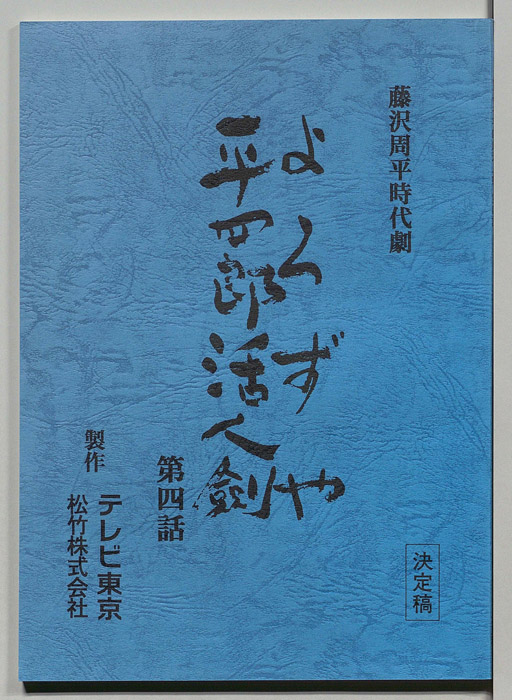 藤沢周平時代劇
よろずや
平四郎活人剣
第四話
製作
テレビ東京
松竹株式会社
決定稿